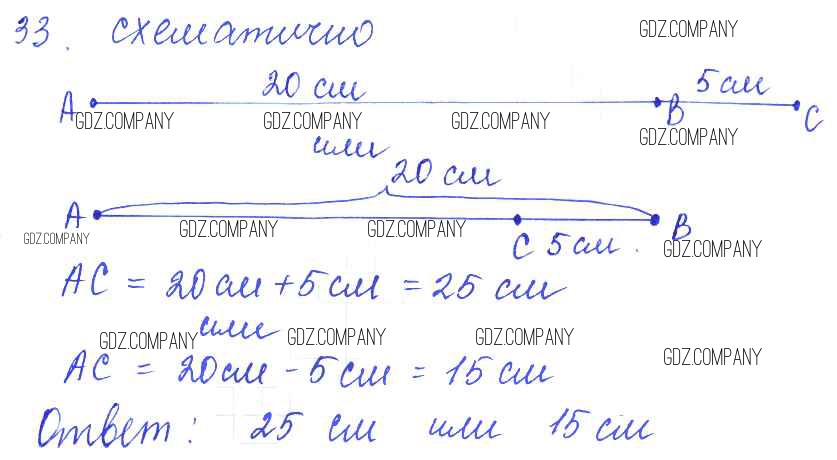 33. схематично
GDZ.COMPANY
20 см 5 см
A B C
GDZ.COMPANY GDZ.COMPANY GDZ.COMPANY GDZ.COMPANY
или
20 см
A B
GDZ.COMPANY GDZ.COMPANY GDZ.COMPANY
C 5 см. GDZ.COMPANY
AC = 20 см + 5 см = 25 см
или
GDZ.COMPANY GDZ.COMPANY GDZ.COMPANY
AC = 20 см - 5 см = 15 см GDZ.COMPANY
Ответ: 25 см или 15 см